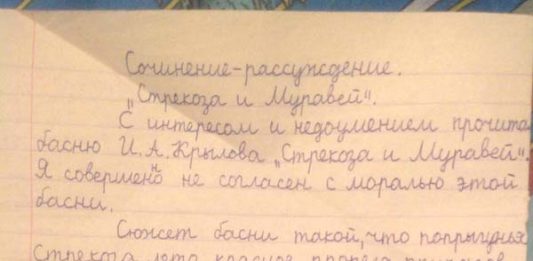 Сочинение-рассуждение.
„Стрекоза и Муравей".
С интересом и недоумением прочита
басню И.А.Крылова „Стрекоза и Муравей".
Я совершенно не согласен с моралью этой
басни.
Сюжет басни такой, что попрыгунья
Стрекоза лето красное пропела